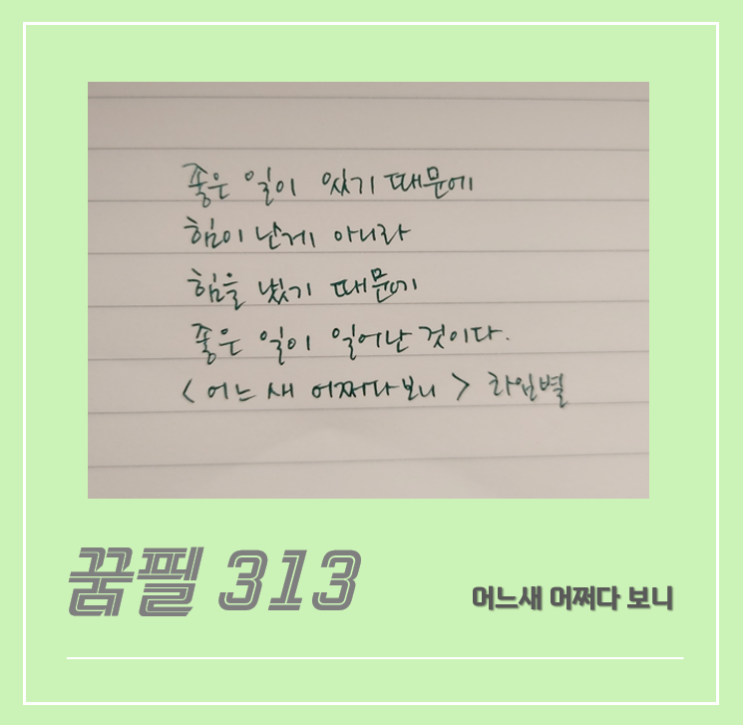 좋은 일이 있기 때문에
힘이 난게 아니라
힘을 냈기 때문에
좋은 일이 일어난 것이다.
<어느 새 어쩌다 보니>
꿈필 313
어느새 어쩌다 보니